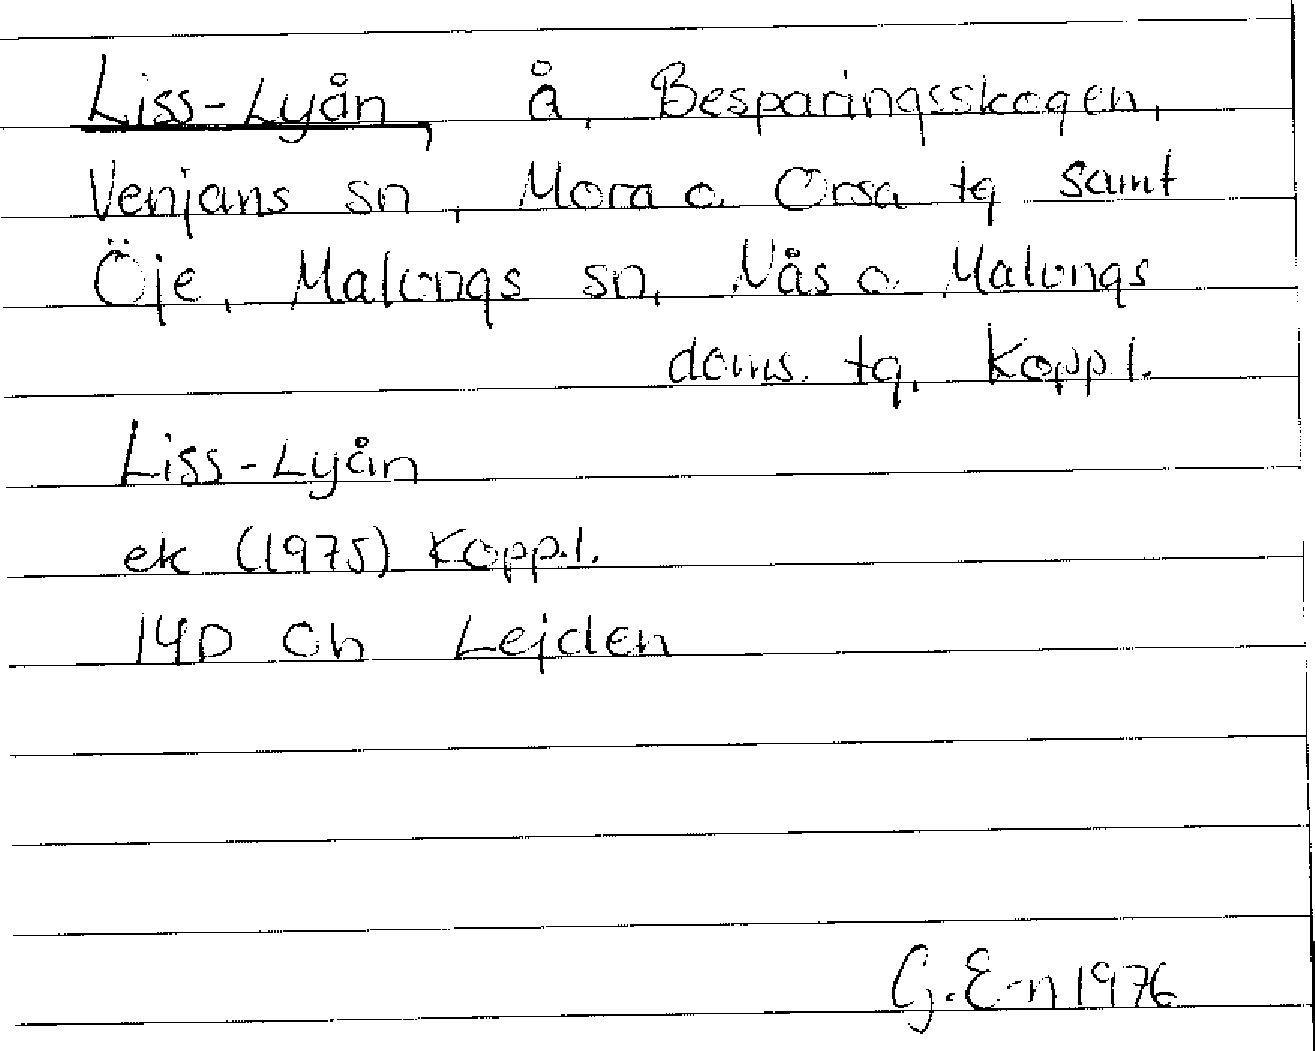 Liss-Lyån, å, Besparingsskogen,
Venjans sn, Mora o. Orsa tg samt
Öje, Malungs sn, Nås o. Malungs
doms. tg, Koppl.
Liss-Lyån
ek (1975) Koppl.
14D Ch Lejden
G. E-n 1976